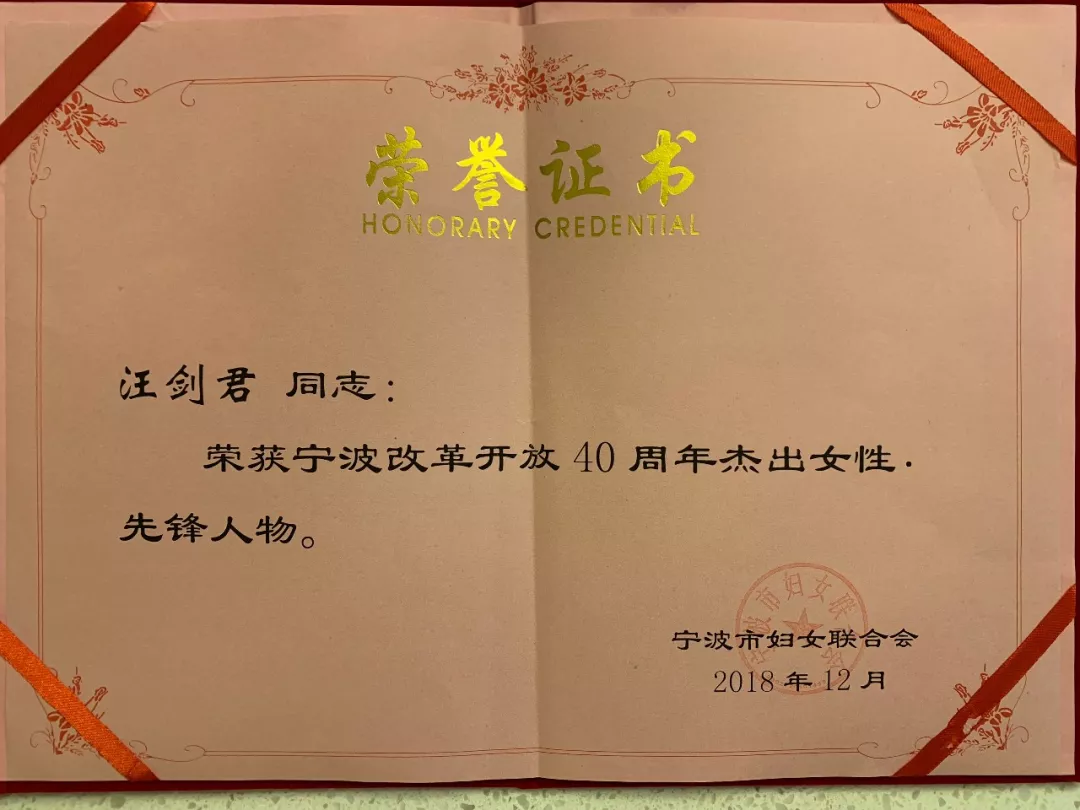 荣誉证书
HONORARY CREDENTIAL
汪剑君 同志：
荣获宁波改革开放40周年杰出女性·
先锋人物。
宁波市妇女联合会
宁波市妇女联合会
2018年12月